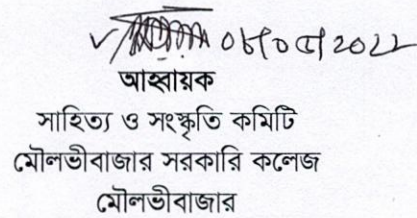 ০৮/০৫/২০২২
আহ্বায়ক
সাহিত্য ও সংস্কৃতি কমিটি
মৌলভীবাজার সরকারি কলেজ
মৌলভীবাজার